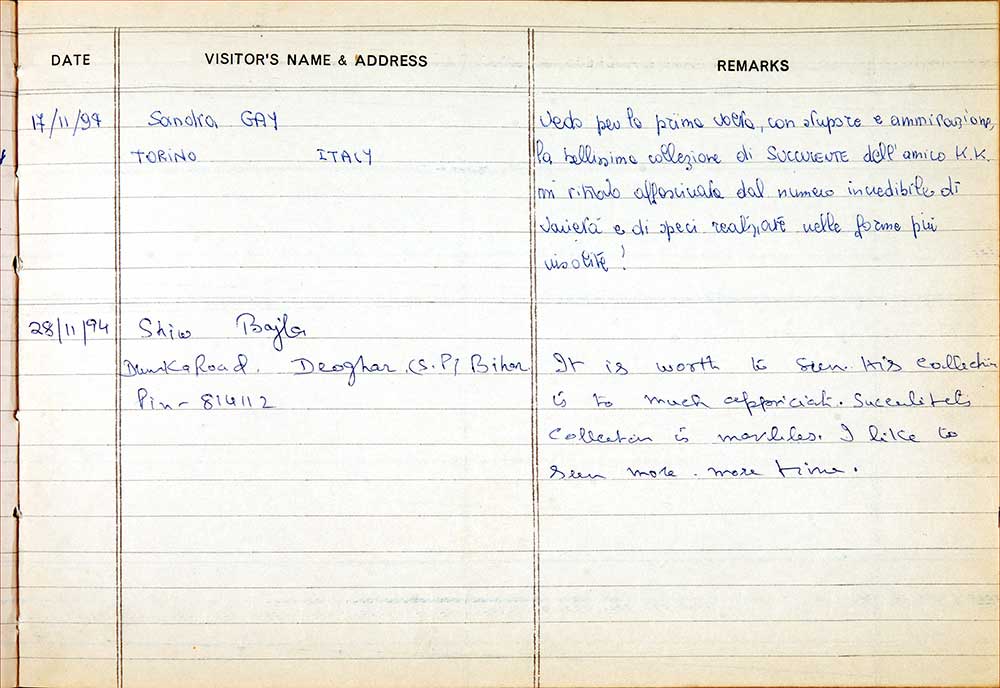 DATE
VISITOR'S NAME & ADDRESS
REMARKS
17/11/94
Sandra GAY
TORINO ITALY
Vedo per la prima volta, con stupore e ammirazione,
la bellissima collezione di SUCCULENTE dell'amico K.K.
mi ritrovo affascinata dal numero incredibile di
varietà e di speci realizzate nelle forme più
insolite!
28/11/94
Shiw Bajla
Dumka Road. Deoghar. (S.P) Bihar
Pin - 814112
It is worth to seen. His collection
is to much appriciat. Succulitels
collection is marbles. I like to
seen more. more time.